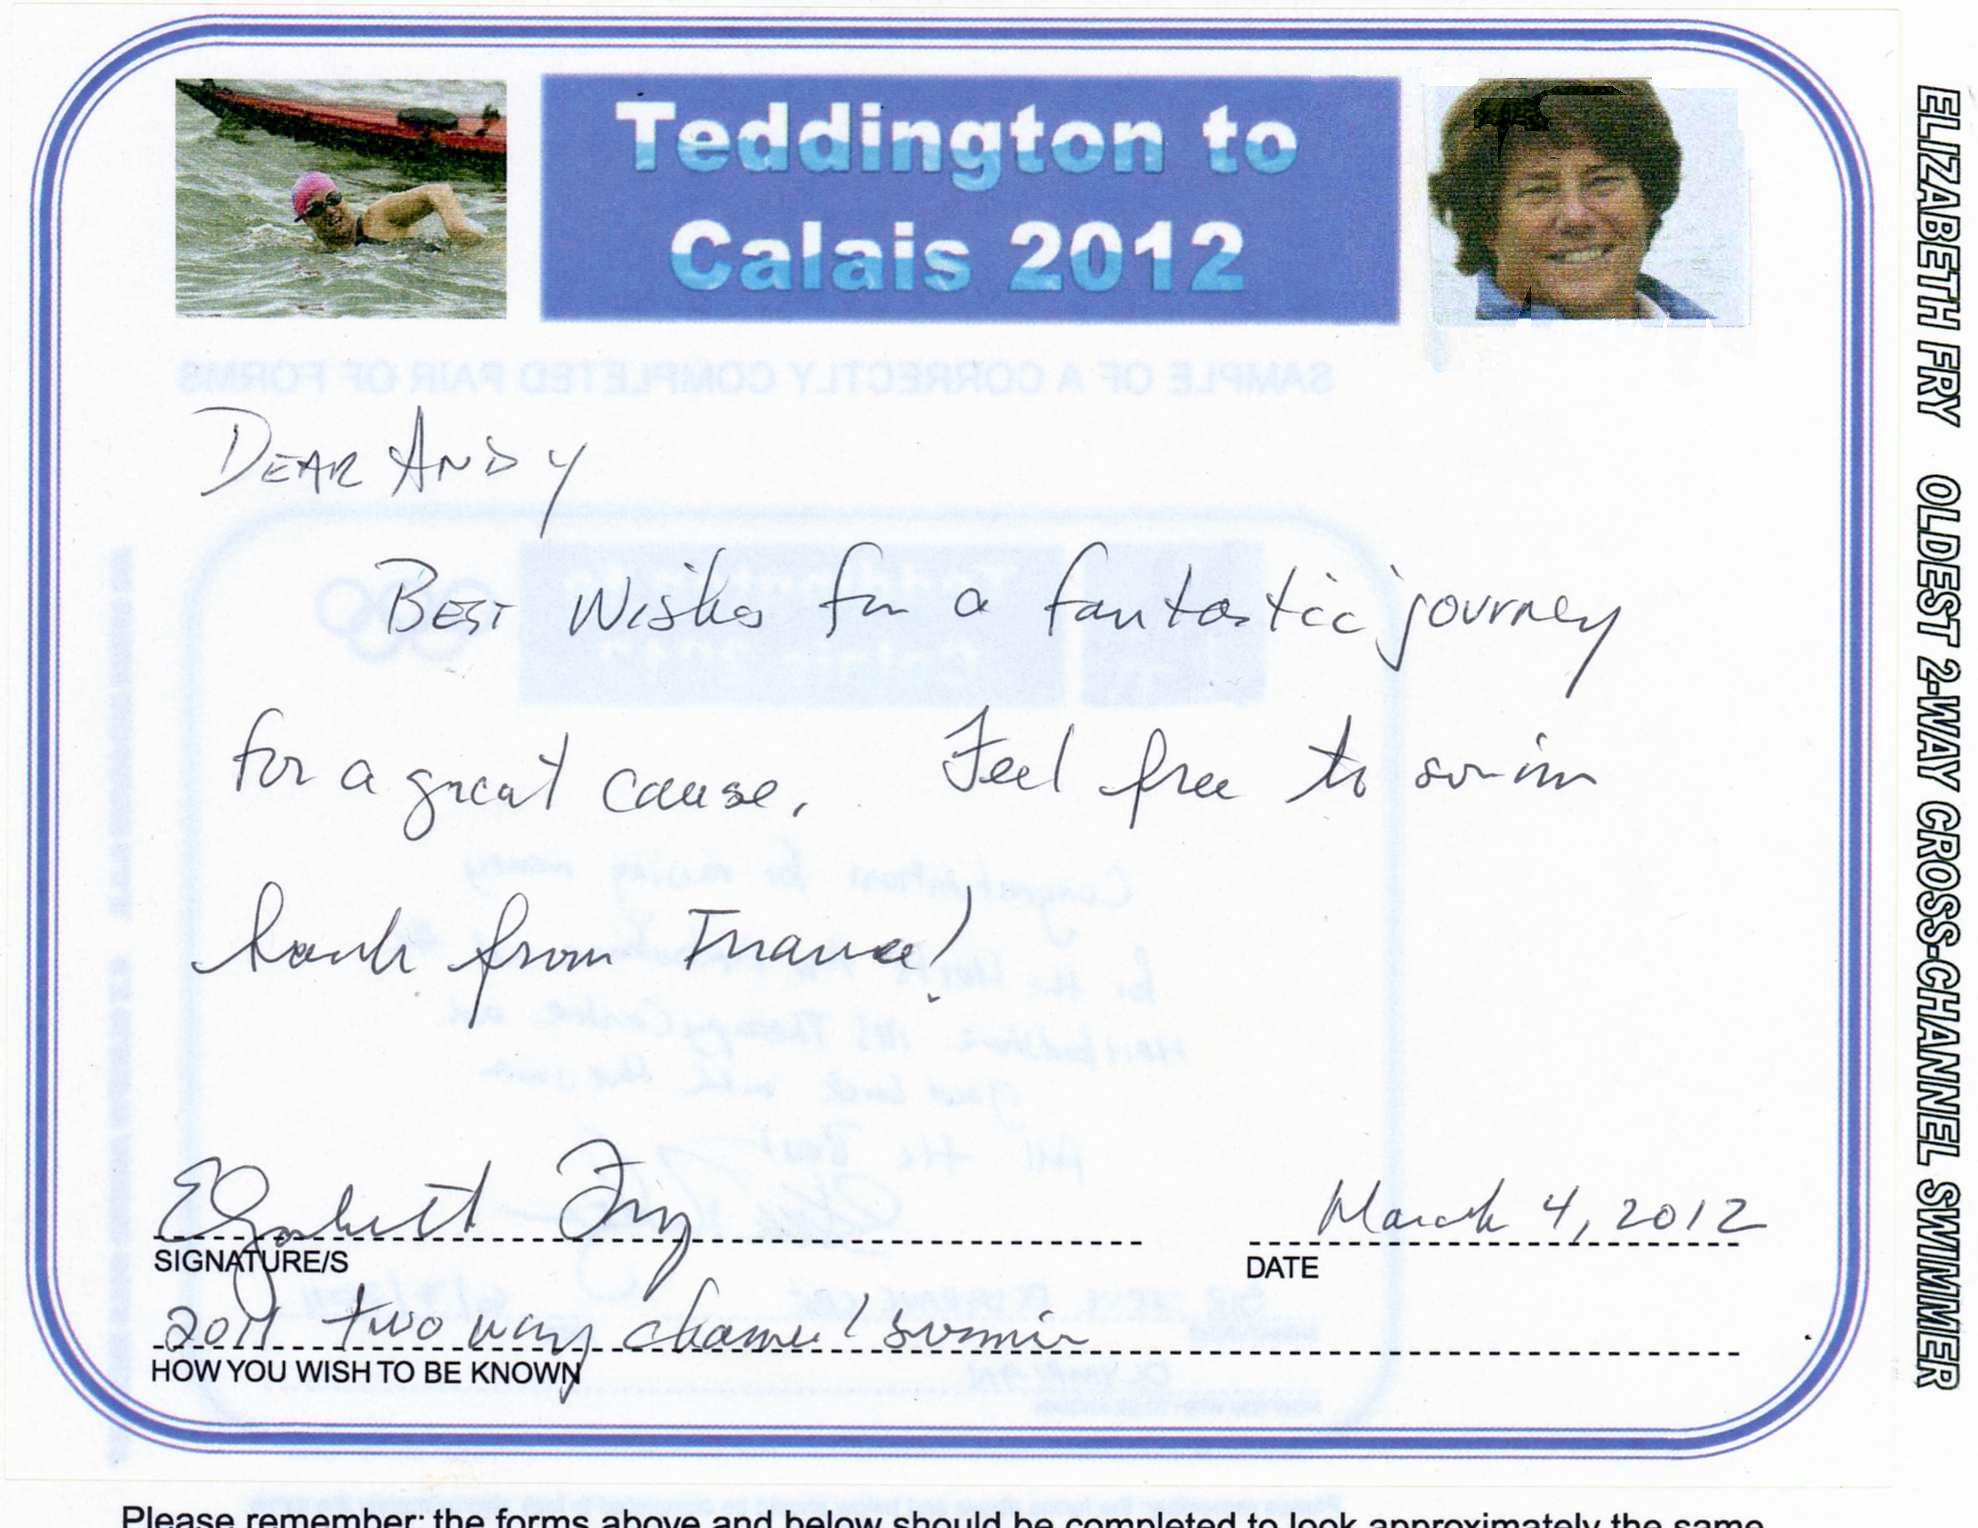 Teddington to
Calais 2012
SAMPLE OF A CORRECTLY COMPLETED PAIR OF FORMS
DEAR ANDY
BEST Wishes for a fantastic journey
for a great cause. Feel free to swim
back from France!
Elizabeth Fry
March 4, 2012
SIGNATURE/S
DATE
2011 two way channel swimmer
HOW YOU WISH TO BE KNOWN
Please remember: the forms above and below should be completed to look approximately the same
ELIZABETH FRY OLDEST 2-WAY CROSS-CHANNEL SWIMMER
Congratulations for raising money
All the Best